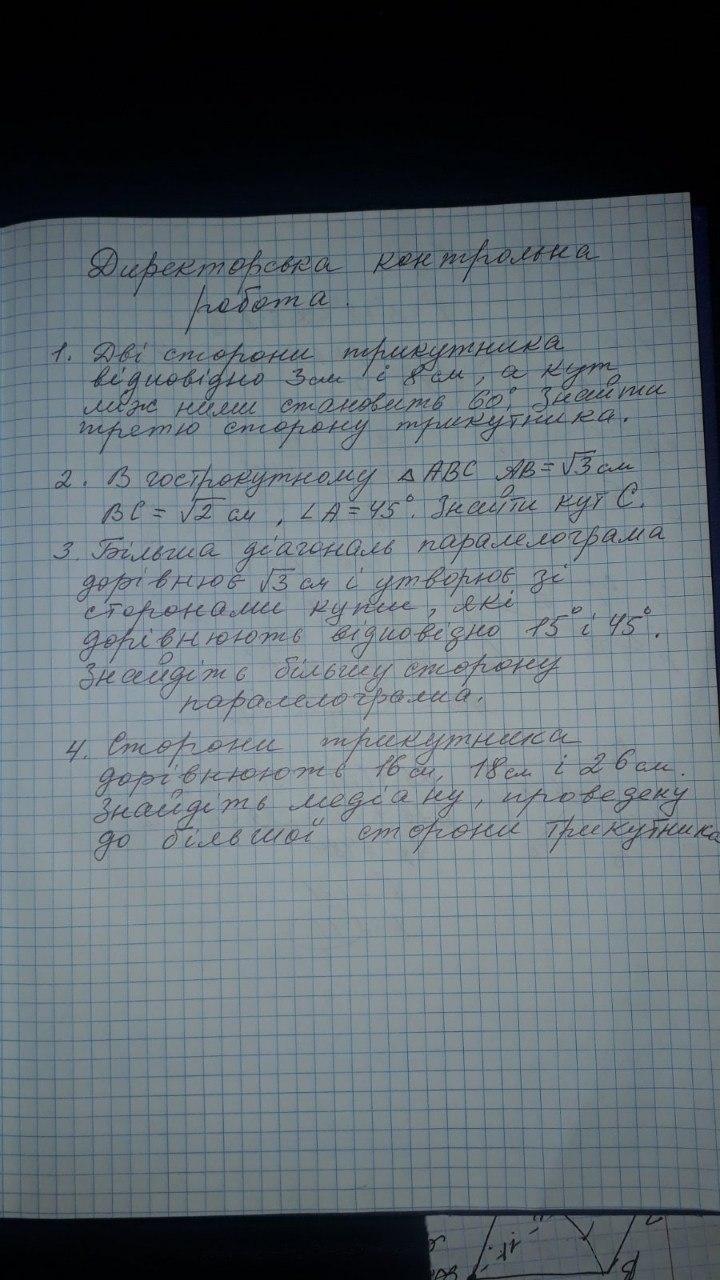 Директорська контрольна
робота.
1. Дві сторони трикутника
відповідно 3см і 8см, а кут
між ними становить 60°. Знайти
третю сторону трикутника.
2. В гострокутному △ABC AB=√3см
BC=√2см, ∠A=45°. Знайти кут C.
3. Більша діагональ паралелограма
дорівнює √3см і утворює зі
сторонами кути, які
дорівнюють відповідно 15° і 45°.
Знайдіть більшу сторону
паралелограма.
4. Сторони трикутника
дорівнюють 16см, 18см і 26см.
Знайдіть медіану, проведену
до більшої сторони трикутника